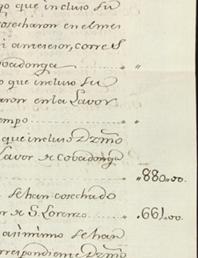 go que incluso su
cosecharon en el mes
i anterior, corres
Cobadonga
o que incluso su
aron en la Lavor
empo
que incluso Dzmo
Lavor de Cobadonga "880..00.
se han cosechado
or de S. Lorenzo "661..00.
asimismo se han
rrespondiente Dzmo